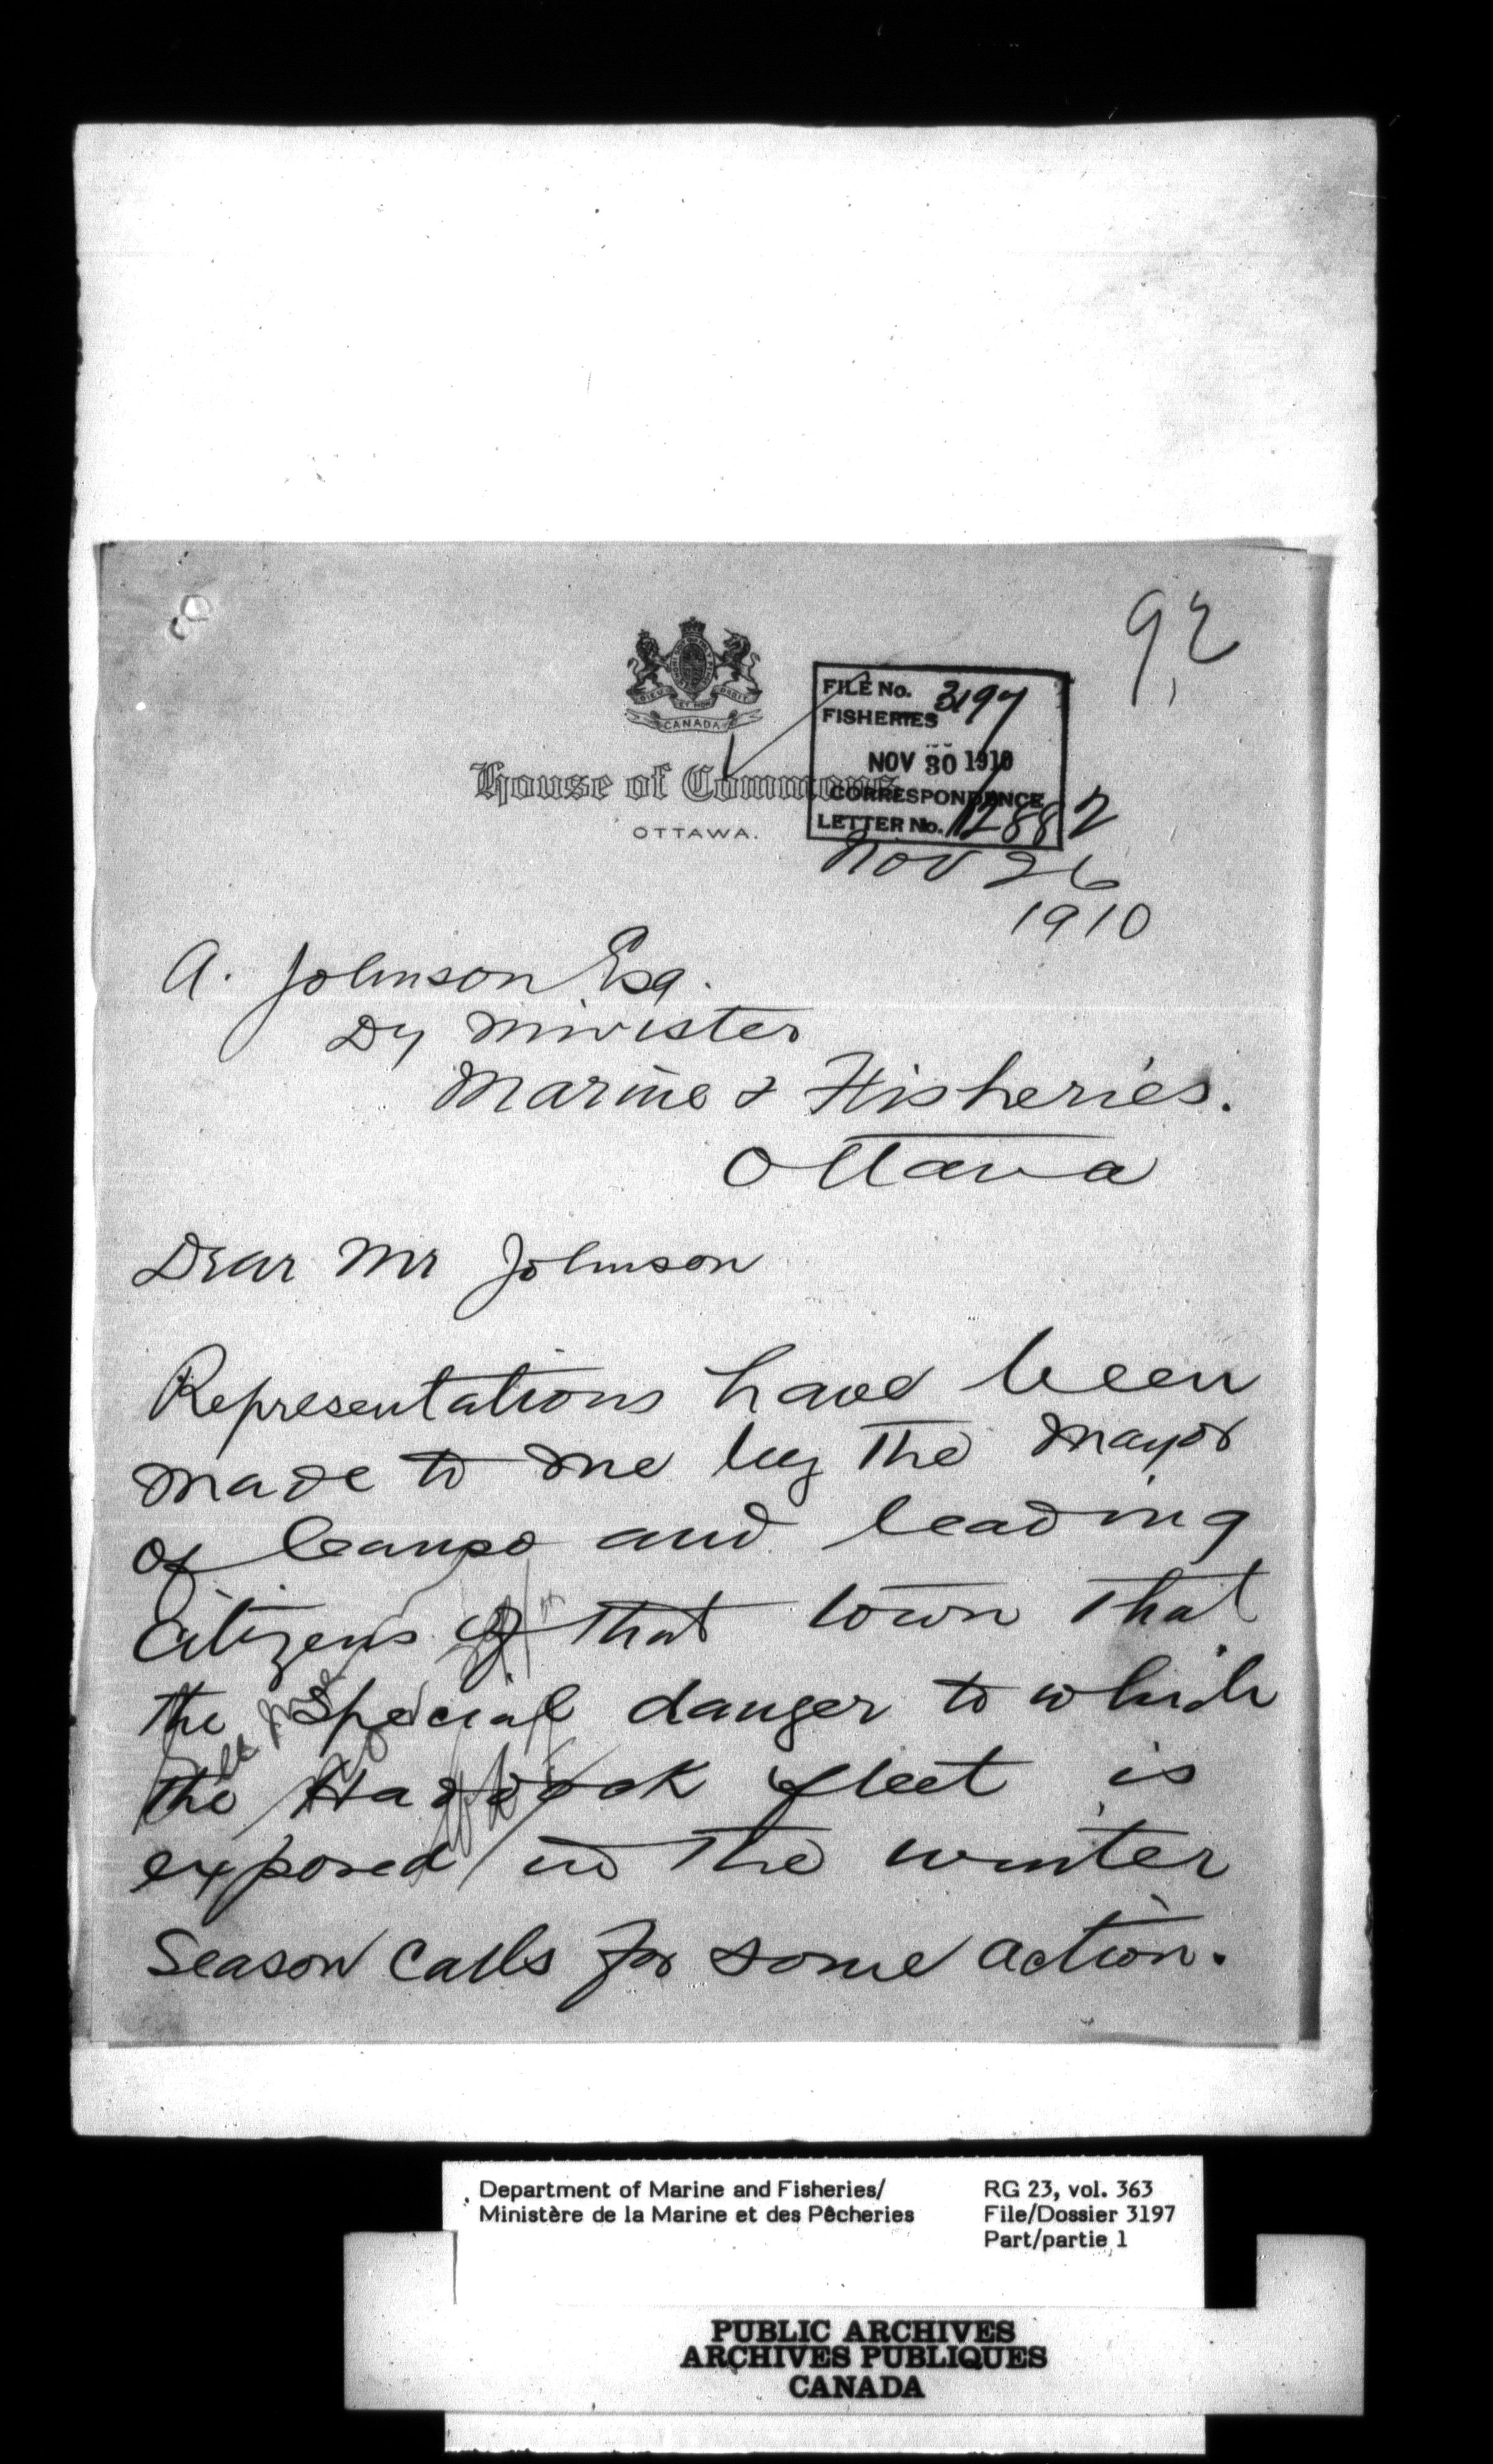 92
DIEU ET MON DROIT
CANADA
FILE No. 3197
FISHERIES
NOV 30 1910
CORRESPONDENCE
LETTER No. 12882
House of Commons
OTTAWA.
Nov 26
1910
A. Johnson Esq.
Dy Minister
Marine & Fisheries.
Ottawa
Dear Mr Johnson
Representations have been
made to me by the Mayor
of Canso and leading
Citizens of that town that
the special danger to which
the Haddock fleet is
exposed in the winter
Season calls for some action.
Department of Marine and Fisheries/
Ministère de la Marine et des Pêcheries
RG 23, vol. 363
File/Dossier 3197
Part/partie 1
PUBLIC ARCHIVES
ARCHIVES PUBLIQUES
CANADA